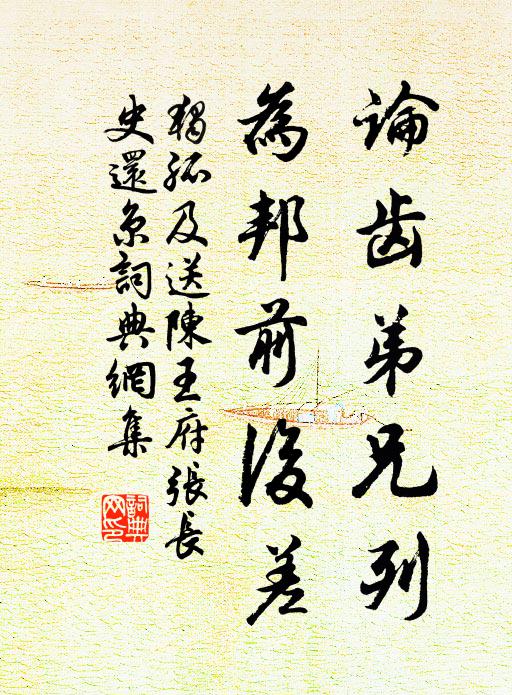 論齿弟兄列
為邦前後差
獨孤及送陳王府張長
史還京詞典網集
詞典
网印